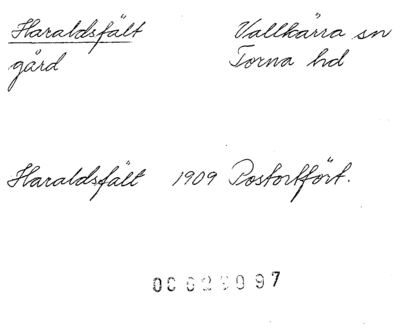 Haraldsfält Vallkärra sn
gård Torna hd
Haraldsfält 1909 Postortfört.